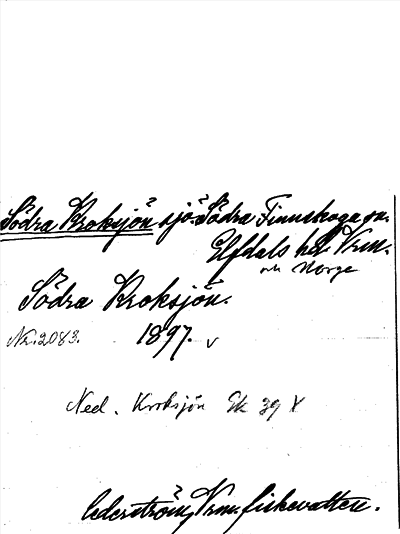 Södra Kroksjön sjö. Södra Finnskoga sn.
Elfdals hd Vrml.
och Norge
Södra Kroksjön.
Nr. 2083. 1897. v
Ned. Kroksjön Ek 39 X
Cederström, Vrml fiskevatten.